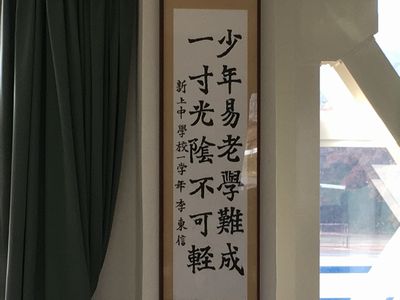 少年易老學難成
一寸光陰不可軽
新上中學校一学年 李東信